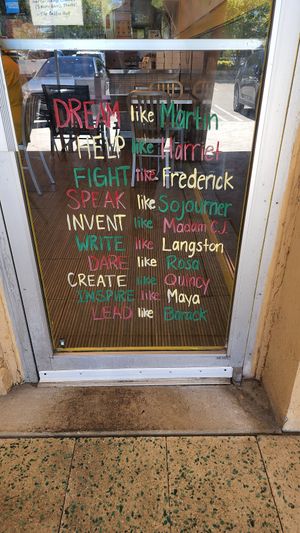 DREAM like Martin
HELP like Harriet
FIGHT like Frederick
SPEAK like Sojourner
INVENT like Madam C.J.
WRITE like Langston
DARE like Rosa
CREATE like Quincy
INSPIRE like Maya
LEAD like Barack